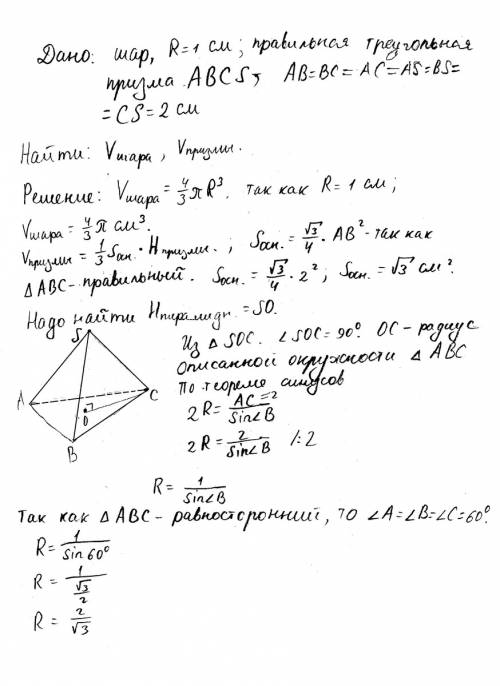 Дано: шар, R=1 см; правильная треугольная
призма ABCS, AB=BC=AC=AS=BS=
=CS=2 см
Найти: Vшара, Vпризмы.
Решение: Vшара=4/3πR³. так как R=1 см;
Vшара=4/3π см³.
Vпризмы=1/3Sосн.·Hпризмы.; Sосн.=√3/4·AB²-так как
ΔABC-правильный. Sосн.=√3/4·2²; Sосн.=√3 см².
Надо найти Hпирамиды.=SO.
Из ΔSOC. ∠SOC=90° OC-радиус
описанной окружности ΔABC
По теореме синусов
2R=AC=2/Sin∠B
2R=2/Sin∠B /:2
R=1/Sin∠B
S
A
C
O
B
Так как ΔABC-равносторонний, то ∠A=∠B=∠C=60°.
R=1/Sin60°
R=1/(√3/2)
R=2/√3